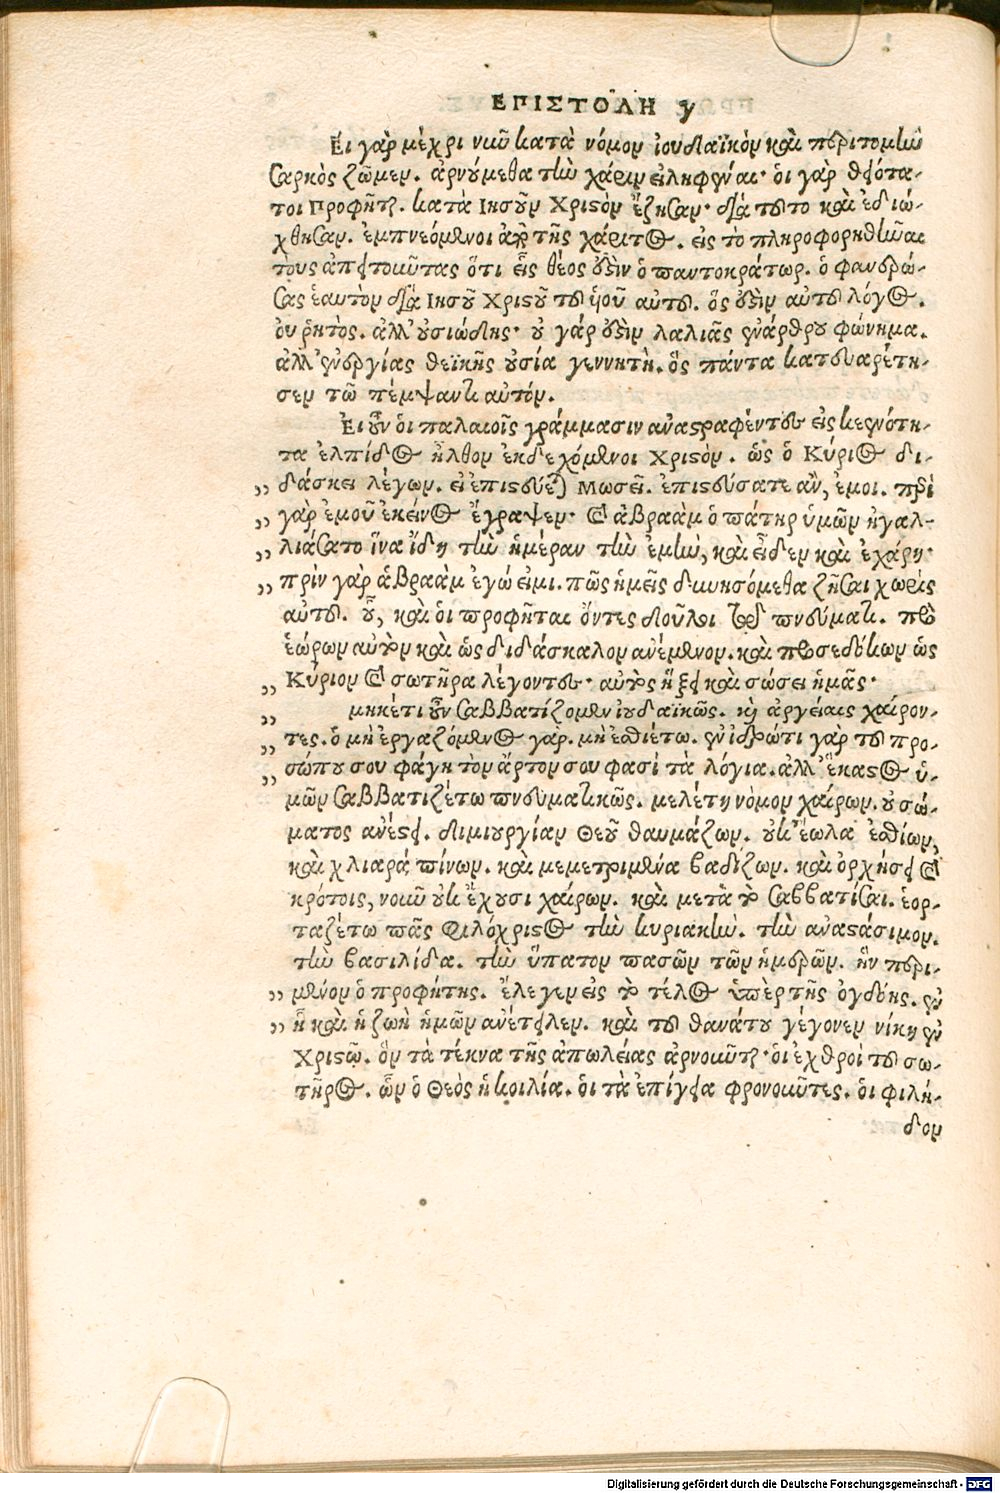 ΕΠΙΣΤΟΛΗ γ
Εἰ γὰρ μέχρι νιῦ κατὰ νόμον ἰουδαϊκὸν καὶ περιτομὴν
σαρκὸς ζῶμεν. ἀρνούμεθα τὴν χάριν εἰληφέναι· ὁι γὰρ θειότα-
τοι Προφῆται. κατὰ Ιησοῦν Χριστὸν ἔζησαν· διὰ τοῦτο καὶ ἐδιώ-
χθησαν. ἐμπνεόμενοι ἀπὸ τῆς χάριτος. εἰς τὸ πληροφορηθῆναι
τοὺς ἀπειθοῦντας ὅτι εἷς θέος ὁ παντοκράτωρ. ὁ φανερώ-
σας ἑαυτὸν διὰ Ιησοῦ Χριστοῦ τοῦ ἡοῦ αὐτοῦ. ὅς αὐτοῦ λόγος.
ὀυ ῥητὸς. ἀλλ' οὐσιώδης· οὐ γάρ λαλιᾶς ἐνάρθρου φώνημα.
ἀλλ' ἐνεργίας θεϊκῆς οὐσία γεννητὴ. ὅς πάντα κατευαρέτη-
σεν τῶ πέμψαντι αὐτόν.
Ἐι οὖν ὁι παλαιοῖς γράμμασιν ἀναστραφέντες εἰς κενότη-
τα ἐλπίδος ἦλθον ἐκδεχόμενοι Χριστὸν. ὡς ὁ Κύριος δι-
,, δάσκει λέγων. εἰ ἐπιστεύετε Μωσεῖ. ἐπιστεύσατε ἂν, ἐμοι. περὶ
,, γὰρ ἐμοῦ ἐκεῖνος ἔγραψεν· καὶ ἀβραὰμ ὁ πάτηρ ὑμῶν ἠγαλ-
,, λιάσατο ἵνα ἴδῃ τὴν ἡμέραν τὴν ἐμὴν, καὶ εἶδεν καὶ ἐχάρη·
,, πρὶν γὰρ ἀβραὰμ ἐγώ ἐιμι. πῶς ἡμεῖς δυνησόμεθα ζῆσαι χωρὶς
αὐτοῦ. οὗ, καὶ ὁι προφῆται ὄντες δοῦλοι τῷ πνεύματι. προ
ἑώρων αὐτὸν καὶ ὡς διδάσκαλον ἀνέμενον. καὶ προσεδόκων ὡς
,, Κύριον καὶ σωτῆρα λέγοντες· αὐτὸς ἥξει καὶ σώσει ἡμᾶς·
,, μηκέτι οὖν σαββατίζομεν ἰουδαϊκῶς. καὶ ἀργείαις χαίρον-
,, τες. ὁ μὴ ἐργαζόμενος γὰρ. μὴ ἐσθιέτω. ἐν ἱδρώτι γὰρ τοῦ προ-
,, σώπου σου φάγῃ τὸν ἄρτον σου φασὶ τὰ λόγια. ἀλλ' ἕκαστος ὑ-
μῶν σαββατιζέτω πνευματικῶς. μελέτῃ νόμου χαίρων. οὐ σώ-
ματος ἀνέσει. δημιουργίαν Θεοῦ θαυμάζων. οὐκ ἕωλα ἐσθίων,
καὶ χλιαρὰ πίνων. καὶ μεμετριμένα βαδίζων. καὶ ὀρχήσει καὶ
κρότοις, νοῦν οὐκ ἔχουσι χαίρων. καὶ μετὰ τὸ σαββατίσαι. ἑορ-
ταζέτω πᾶς Φιλόχριστος τὴν κυριακὴν. τὴν ἀναστάσιμον.
τὴν βασιλίδα. τὴν ὕπατον πασῶν τῶν ἡμερῶν. ἣν περι-
,, μένον ὁ προφήτης. ἔλεγεν εἰς τὸ τέλος ὑπὲρ τῆς ὀγδόης. ἐν
,, ᾗ καὶ ἡ ζωὴ ἡμῶν ἀνέτειλεν. καὶ τοῦ θανάτου γέγονεν νίκη ἐν
Χριστῷ. ὃν τὰ τέκνα τῆς ἀπωλείας ἀρνοῦνται· ὁι ἐχθροὶ τοῦ σω-
τῆρος. ὧν ὁ Θεὸς ἡ κοιλία. ὁι τὰ ἐπίγεια φρονοῦντες. ὁι φιλή-
δον
Digitalisierung gefördert durch die Deutsche Forschungsgemeinschaft - DFG